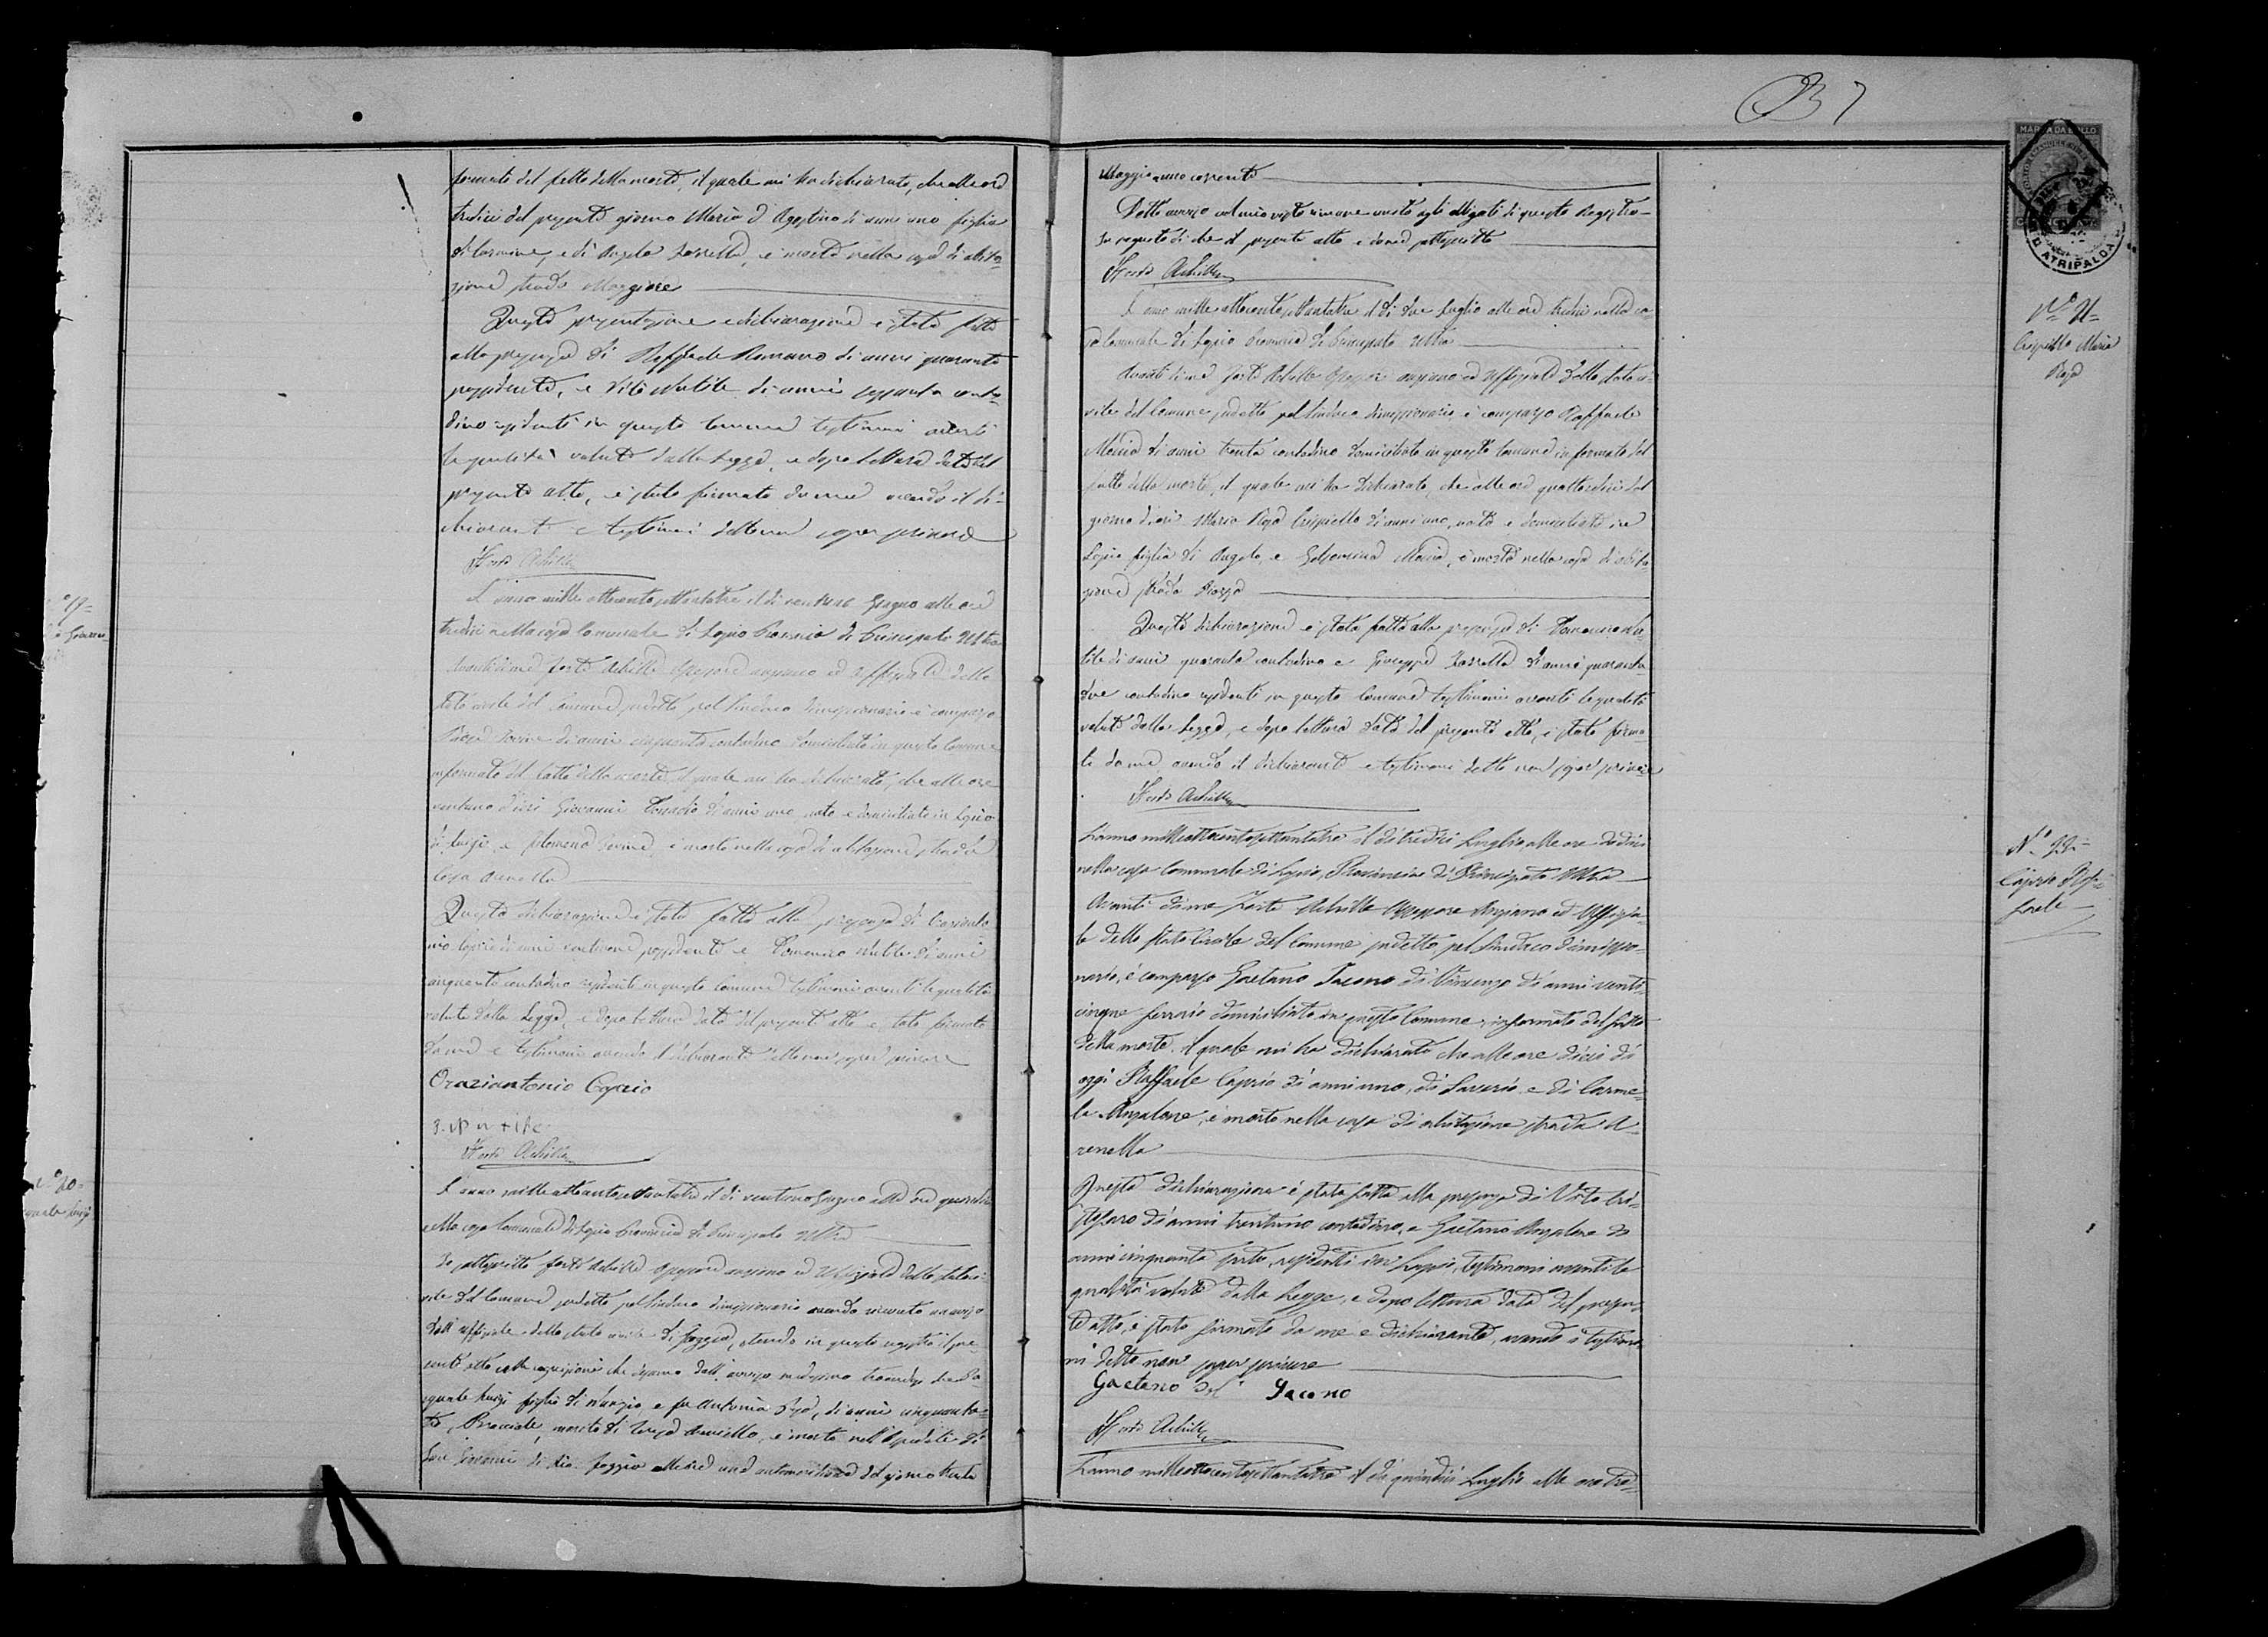 formato del fatto della morte, il quale mi ha dichiarato, che alle ore
tredici del presente giorno Maria D'Agostino di anni uno figlia
di Carmine, e di Angela Zarrella, è morta nella casa di abita-
zione strada Maggiore
Questa presentazione e dichiarazione è stata fatta
alla presenza di Raffaele Romano di anni quaranta
possidente, e Vito Nutile di anni sessanta conta-
dino residenti in questo Comune testimoni aventi
le qualità volute dalla Legge, e dopo lettura data del
presente atto, è stato firmato da me avendo il di-
chiarante e testimoni detto non saper firmare
Forte Achille
N° 19=
Giovanni
L'anno mille ottocento settantatre il dì ventuno Giugno alle ore
tredici nella casa Comunale di Lapio Provincia di Principato Ultra
Avanti di me Forte Achille Assessore anziano ed Uffiziale dello
stato civile del Comune sudetto pel Sindaco dimissionario è comparso
di anni cinquanta contadino domiciliato in questo Comune
informato del fatto della morte, il quale mi ha dichiarato, che alle ore
ventuno d'ieri Giovanni di anni uno, nato e domiciliato in Lapio
di Luigi, e Filomena è morto nella casa di abitazione strada
Questa dichiarazione è stata fatta alla presenza di Oraziantonio
Caprio di anni possidente e Domenico Nutile di anni
cinquanta contadino residenti in questo Comune testimoni aventi le qualità
volute dalla Legge, e dopo lettura data del presente atto è stato firmato
da me e testimoni avendo il dichiarante detto non saper firmare
Oraziantonio Caprio
Forte Achille
N° 20=
Pasquale Luigi
L'anno mille ottocento settantatre il dì ventuno Giugno alle ore quindici
nella casa Comunale di Lapio Provincia di Principato Ultra
Io sottoscritto Forte Achille Assessore anziano ed Uffiziale dello stato ci-
vile del Comune sudetto pel Sindaco dimissionario avendo ricevuto un avviso
dall'uffiziale dello stato civile di Foggia, stendo in questo registro il pre-
sente atto colle cognizioni che si sono dall'avviso medesimo traendo che Pa-
squale Luigi figlio di Nunzio e fu Antonia di anni cinquanta-
Bracciale, marito di Teresa è morto nell'Ospedale di
San Giovanni di Dio Foggia alle ore una antimeridiane del giorno trenta
B 7
MARCA DA BOLLO
ATRIPALDA
Maggio anno corrente
Detto avviso col mio visto rimane unito agli allegati di questo Registro-
In seguito di che il presente atto è da me sottoscritto
Forte Achille
N° 21=
Crispiello Maria
Rosa
L'anno mille ottocento settantatre il dì due Luglio alle ore tredici nella ca-
sa Comunale di Lapio Provincia di Principato Ultra
Avanti di me Forte Achille Assessore anziano ed Uffiziale dello stato ci-
vile del Comune sudetto pel Sindaco dimissionario è comparso Raffaele
di anni trenta contadino domiciliato in questo Comune informato del
fatto della morte, il quale mi ha dichiarato, che alle ore quattordici del
giorno d'ieri Maria Rosa Crispiello di anni uno, nata e domiciliata in
Lapio figlia di Angelo, e Gelsomina è morta nella casa di abita-
zione strada Piazza
Questa dichiarazione è stata fatta alla presenza di Domenico Nu-
tile di anni quaranta contadino e Giuseppe Zarrella di anni quaranta
due contadino residenti in questo Comune testimoni aventi le qualità
volute dalla Legge, e dopo lettura data del presente atto, è stato firma-
to da me avendo il dichiarante e testimoni detto non saper firmare
Forte Achille
N° 22=
Caprio Raf-
faele
L'anno milleottocentosettantatre il dì tredici Luglio alle ore dodici
nella casa Comunale di Lapio, Provincia di Principato Ultra
Avanti di me Forte Achille Assessore Anziano ed Uffizia-
le dello Stato Civile del Comune sudetto pel Sindaco dimissio-
nario, è comparso Gaetano Iacono di Vincenzo di anni venti-
cinque ferraio domiciliato in questo Comune, informato del fatto
della morte. Il quale mi ha dichiarato che alle ore dieci di
oggi Raffaele Caprio di anni uno, di Saverio e di Carme-
la Anzalone, è morto nella casa di abitazione strada A-
renella
Questa dichiarazione è stata fatta alla presenza di Vito Cri-
stofaro di anni trentuno contadino, e Gaetano Anzalone di
anni cinquanta sarto, residenti in Lapio, testimoni aventi le
qualità volute dalla Legge, e dopo lettura data del presen-
te atto, è stato firmato da me e dichiarante, avendo i testimo-
ni detto non saper firmare
Gaetano Iacono
Forte Achille
L'anno milleottocentosettantatre il dì quindici Luglio alle ore tre-